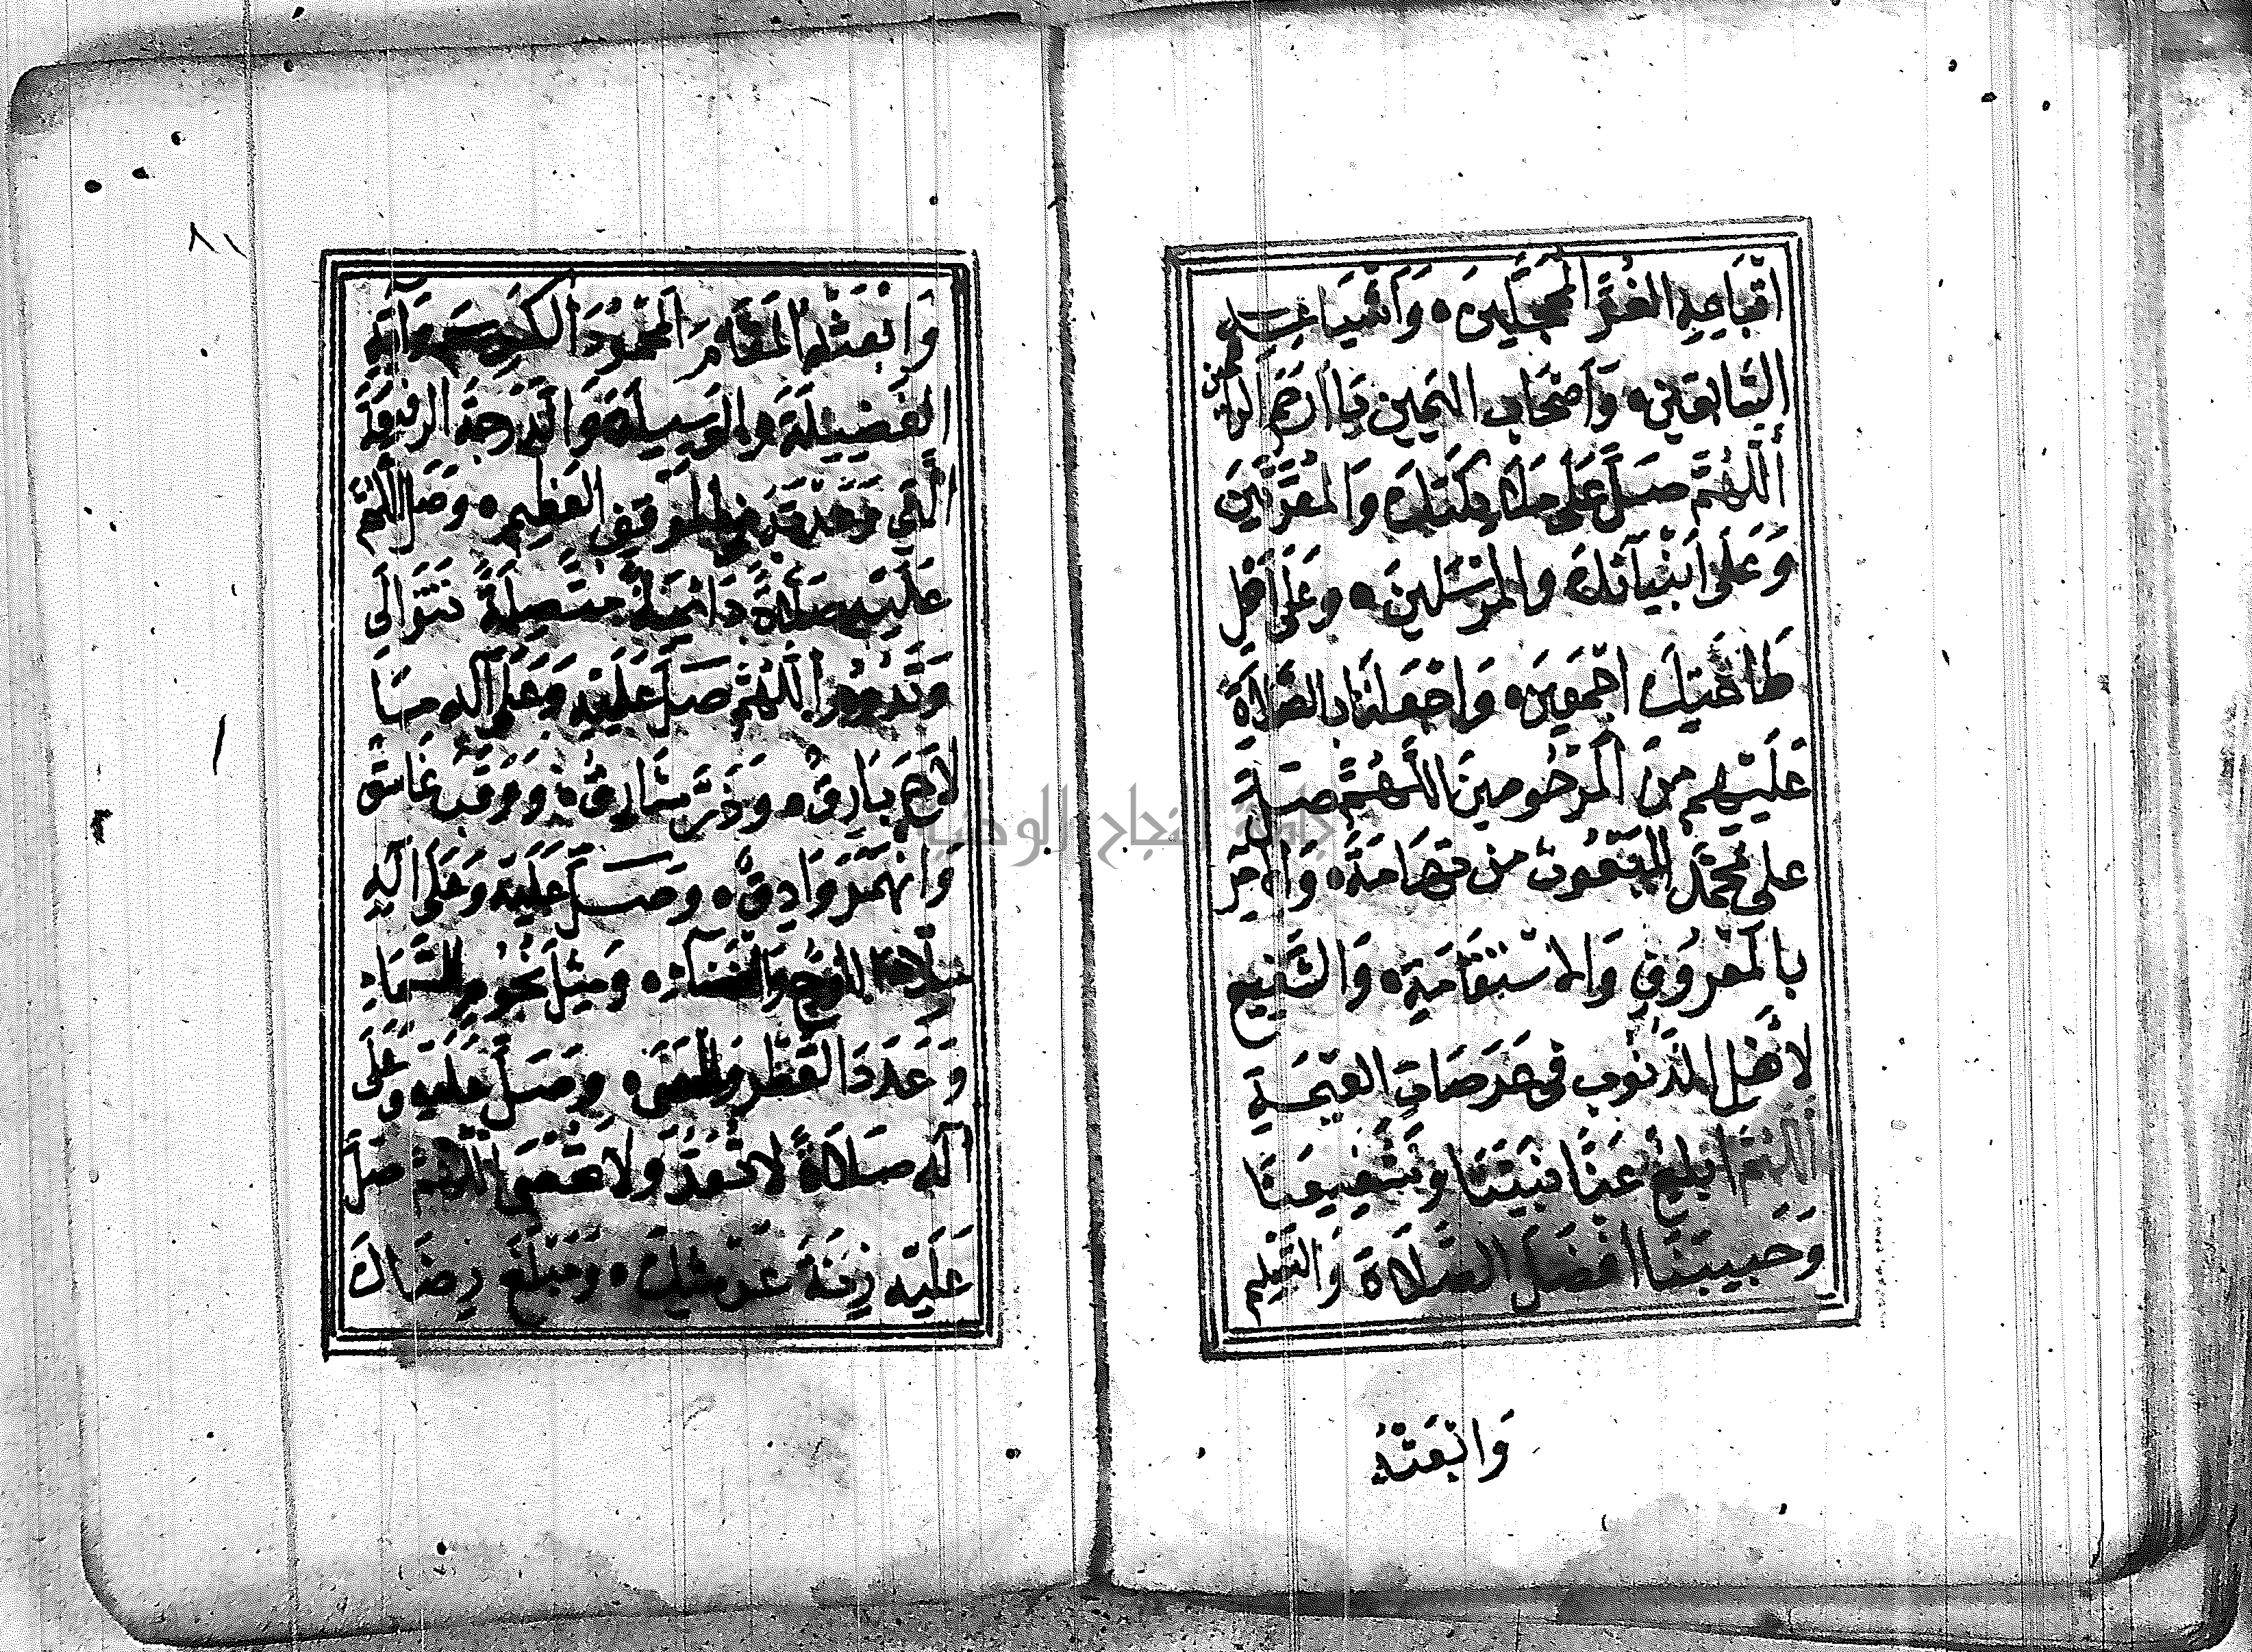 اَتْبَاعِهِ الغُرِّ المُحَجَّلِينَ وَاَشْيَاعِهِ
السَّابِقِينَ وَاَصْحَابِ اليَمِينِ يَا اَرْحَمَ الرَّاحمين
اَللّٰهُمَّ صَلِّ عَلَى مَلَائِكَتِكَ وَالمُقَرَّبِينَ
وَعَلَى اَنْبِيَآئِكَ والمُرْسَلِينَ وعَلَى اَهْلِ
طَاعَتِكَ اَجْمَعِينَ وَاجْعَلْنَا بِالصَّلَاةِ
عَلَيْهِم مِنَ المَرْحُومِينَ اللّٰهُمَّ صَلِّ
على مُحَمَّدٍ المَبْعُوثِ مِن تِهَامَةَ وَالآمِرِ
بِالمَعْرُوفِ وَالاسْتِقَامَةِ وَالشَّفِيعِ
لِاَهْلِ الذُّنُوبِ فِي عَرَصَاتِ القِيمَةِ
اَللّٰهُمَّ اَبْلِغْ عَنَّا نَبِيَّنَا وَشَفِيعَنَا
وَحَبِيبَنَا اَفْضَلَ الصَّلَاةِ وَالتَّسْلِيمِ
وَابْعَثْهُ
٨١
وَابْعَثْهُ المَقَامَ المَحْمُودَ الكَرِيمَ وَآتِهِ
الفَضِيلَةَ وَالوَسِيلَةَ وَالدَّرَجَةَ الرفِيعَةَ
الَّتِي وَعَدْتَهُ فِي المَوْقِفِ العَظِيمِ وَصَلِّ اللّٰهُمَّ
عَلَيْهِ صَلَاةً دَائِمَةً مُتَّصِلَةً تَتَوَالَى
وَتَدُومُ اَللّٰهُمَّ صَلِّ عَلَيْهِ وَعَلَى آلِهِ مَا
لَاحَ بَارِقٌ وَذَرَّ شَارِقٌ وَوَقَبَ غَاسِقٌ
وَانْهَمَرَ وَادِقٌ وصَلِّ عَلَيْهِ وَعَلَى آلِهِ
مِلْءَ اللَّوْحِ وَالفَضَاءِ وَمِثْلَ نُجُومِ السَّمَاءِ
وَعَدَدَ القَطْرِ وَالحَصَى وَصَلِّ عَلَيْهِ وَعَلَى
آلِهِ صَلَاةً لَا تُعَدُّ وَلَا تُحْصَى اَللّٰهُمَّ صَلِّ
عَلَيْهِ زِنَةَ عَرْشِكَ وَمَبْلَغَ رِضَاكَ
جامعة النجاح الوطنية